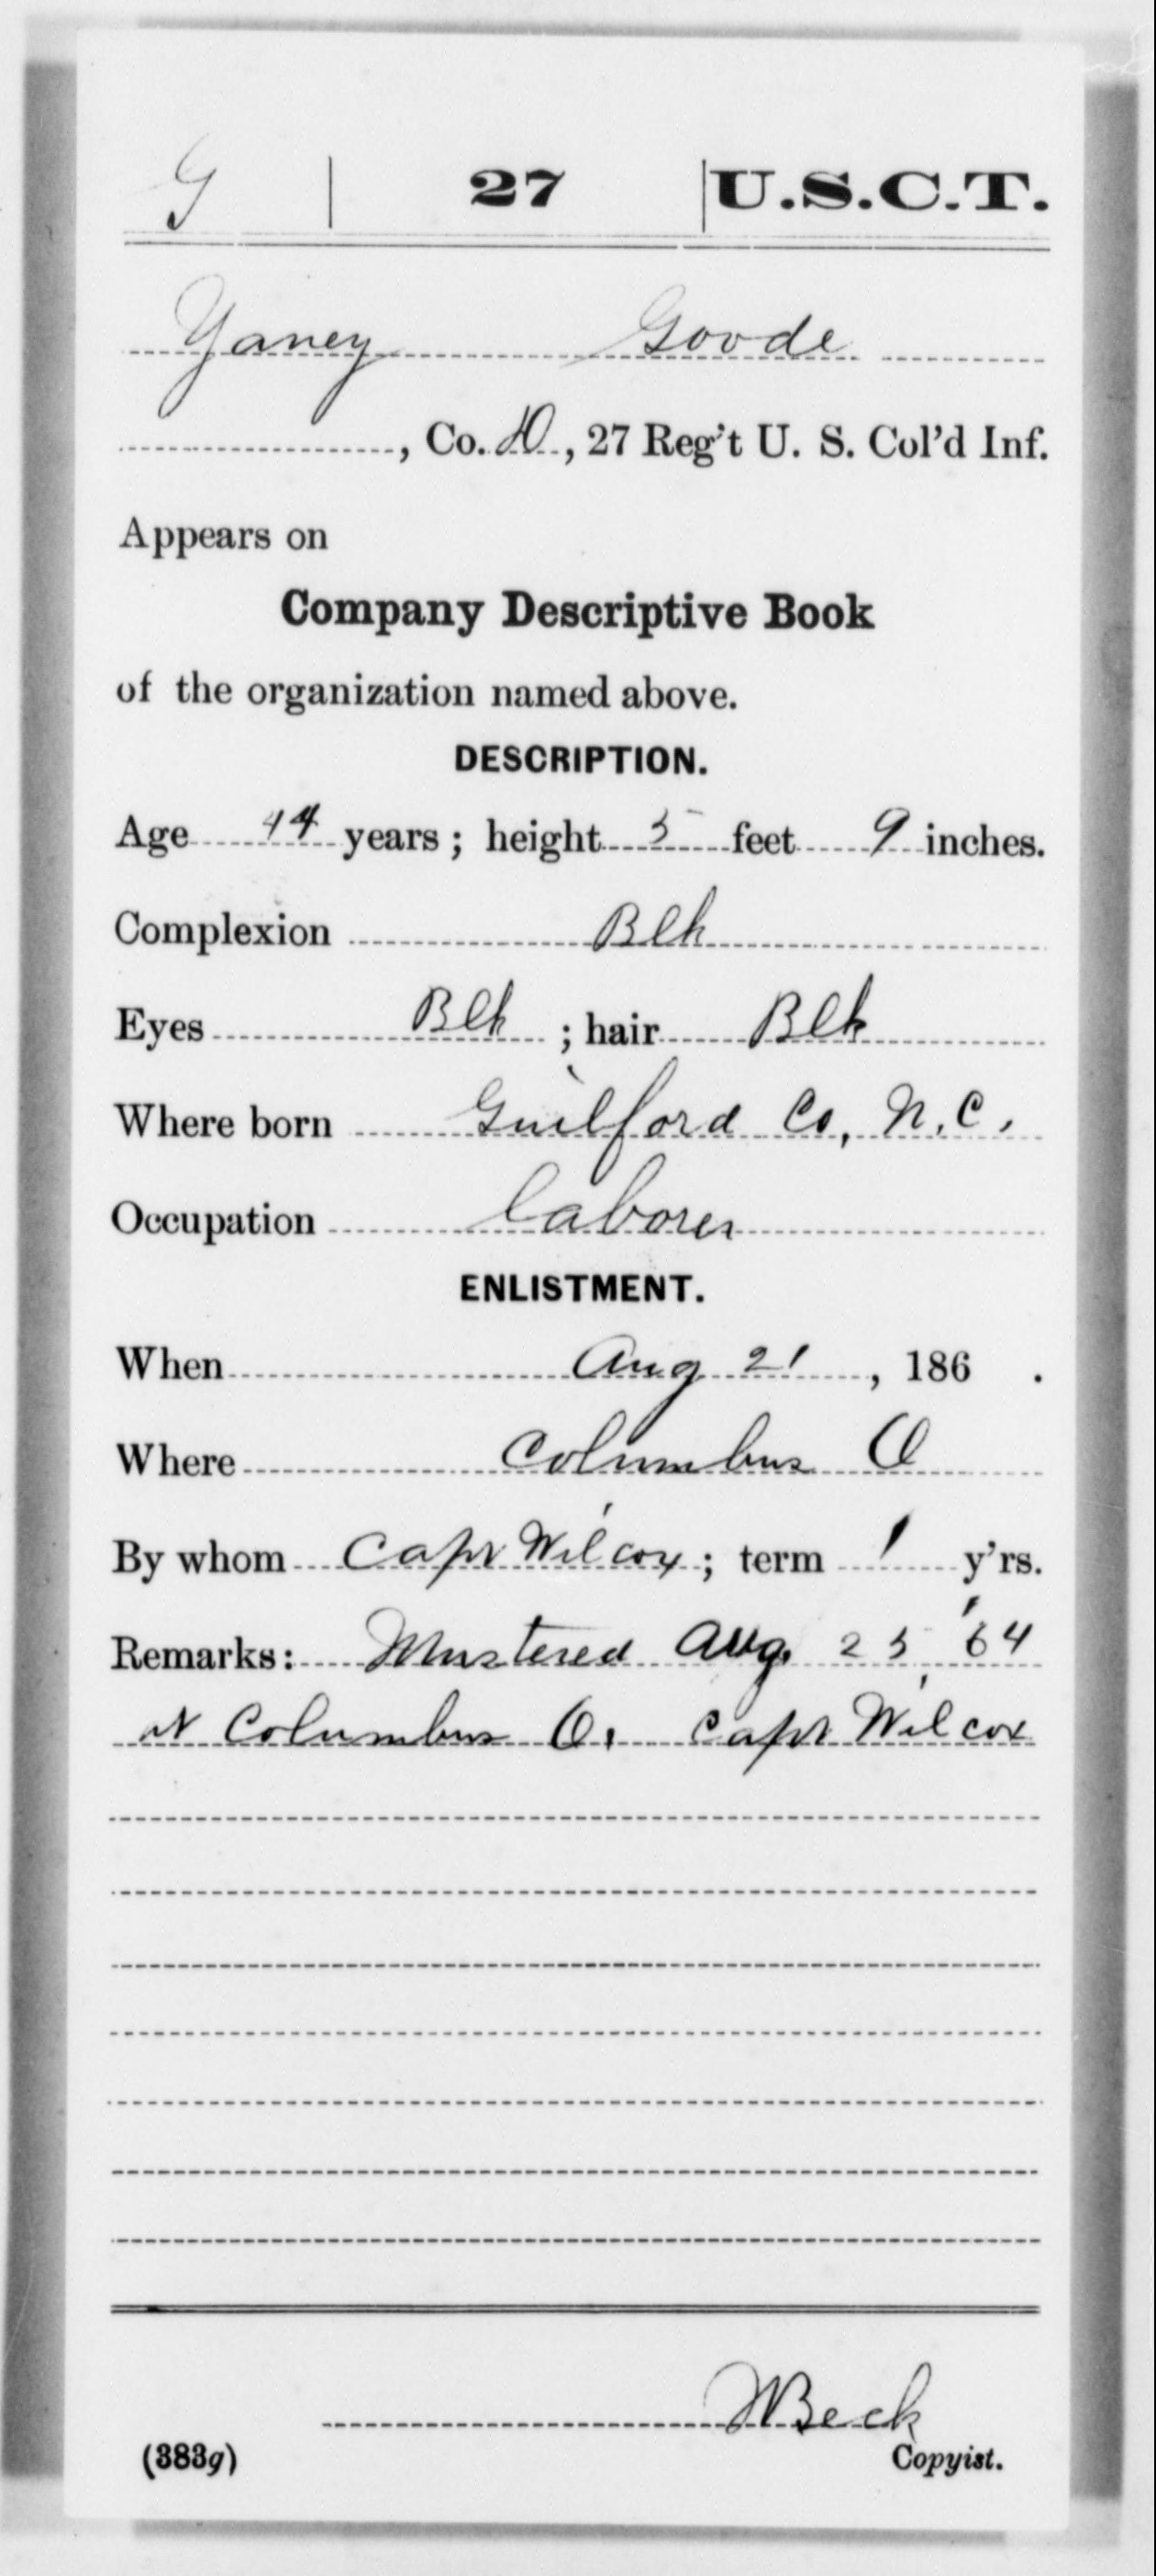 G | 27 | U.S.C.T.
Yancy Goode
, Co. D, 27 Reg't U. S. Col'd Inf.
Appears on
Company Descriptive Book
of the organization named above.
DESCRIPTION.
Age 44 years; height 5 feet 9 inches.
Complexion Blk
Eyes Blk; hair Blk
Where born Guilford Co, N.C.
Occupation laborer
ENLISTMENT.
When Aug 21, 186 .
Where Columbus O
By whom Capt Wilcox; term 1 y'rs.
Remarks: Mustered Aug. 25, '64
at Columbus O. Capt Wilcox
Beck
(383g) Copyist.